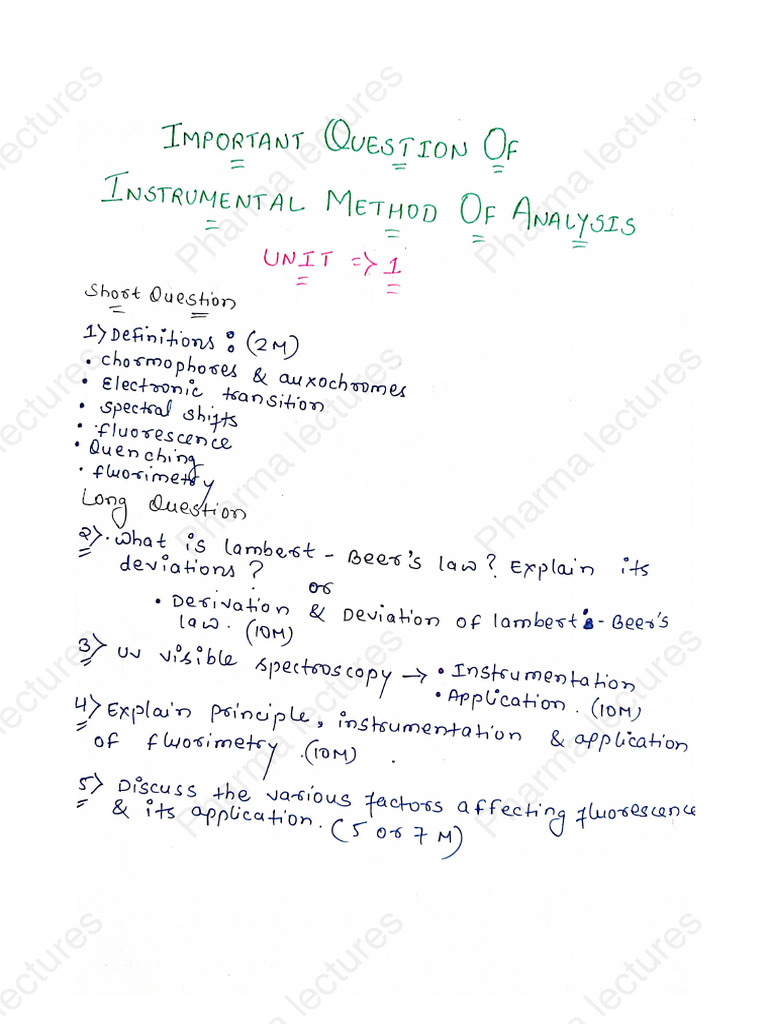 IMPORTANT QUESTION OF
INSTRUMENTAL METHOD OF ANALYSIS
UNIT => 1
Short Question
1) Definitions : (2M)
• chormophores & auxochromes
• Electronic transition
• spectral shifts
• fluorescence
• Quenching
• fluorimetry
Long Question
2) • What is lambert - Beer's law? Explain its
deviations?
or
• Derivation & Deviation of lambert's - Beer's
law. (10M)
3) uv visible spectroscopy → • Instrumentation
• Application. (10M)
4) Explain principle, instrumentation & application
of fluorimetry. (10M)
5) Discuss the various factors affecting fluorescence
& its application. (5 or 7 M)
Pharma lectures